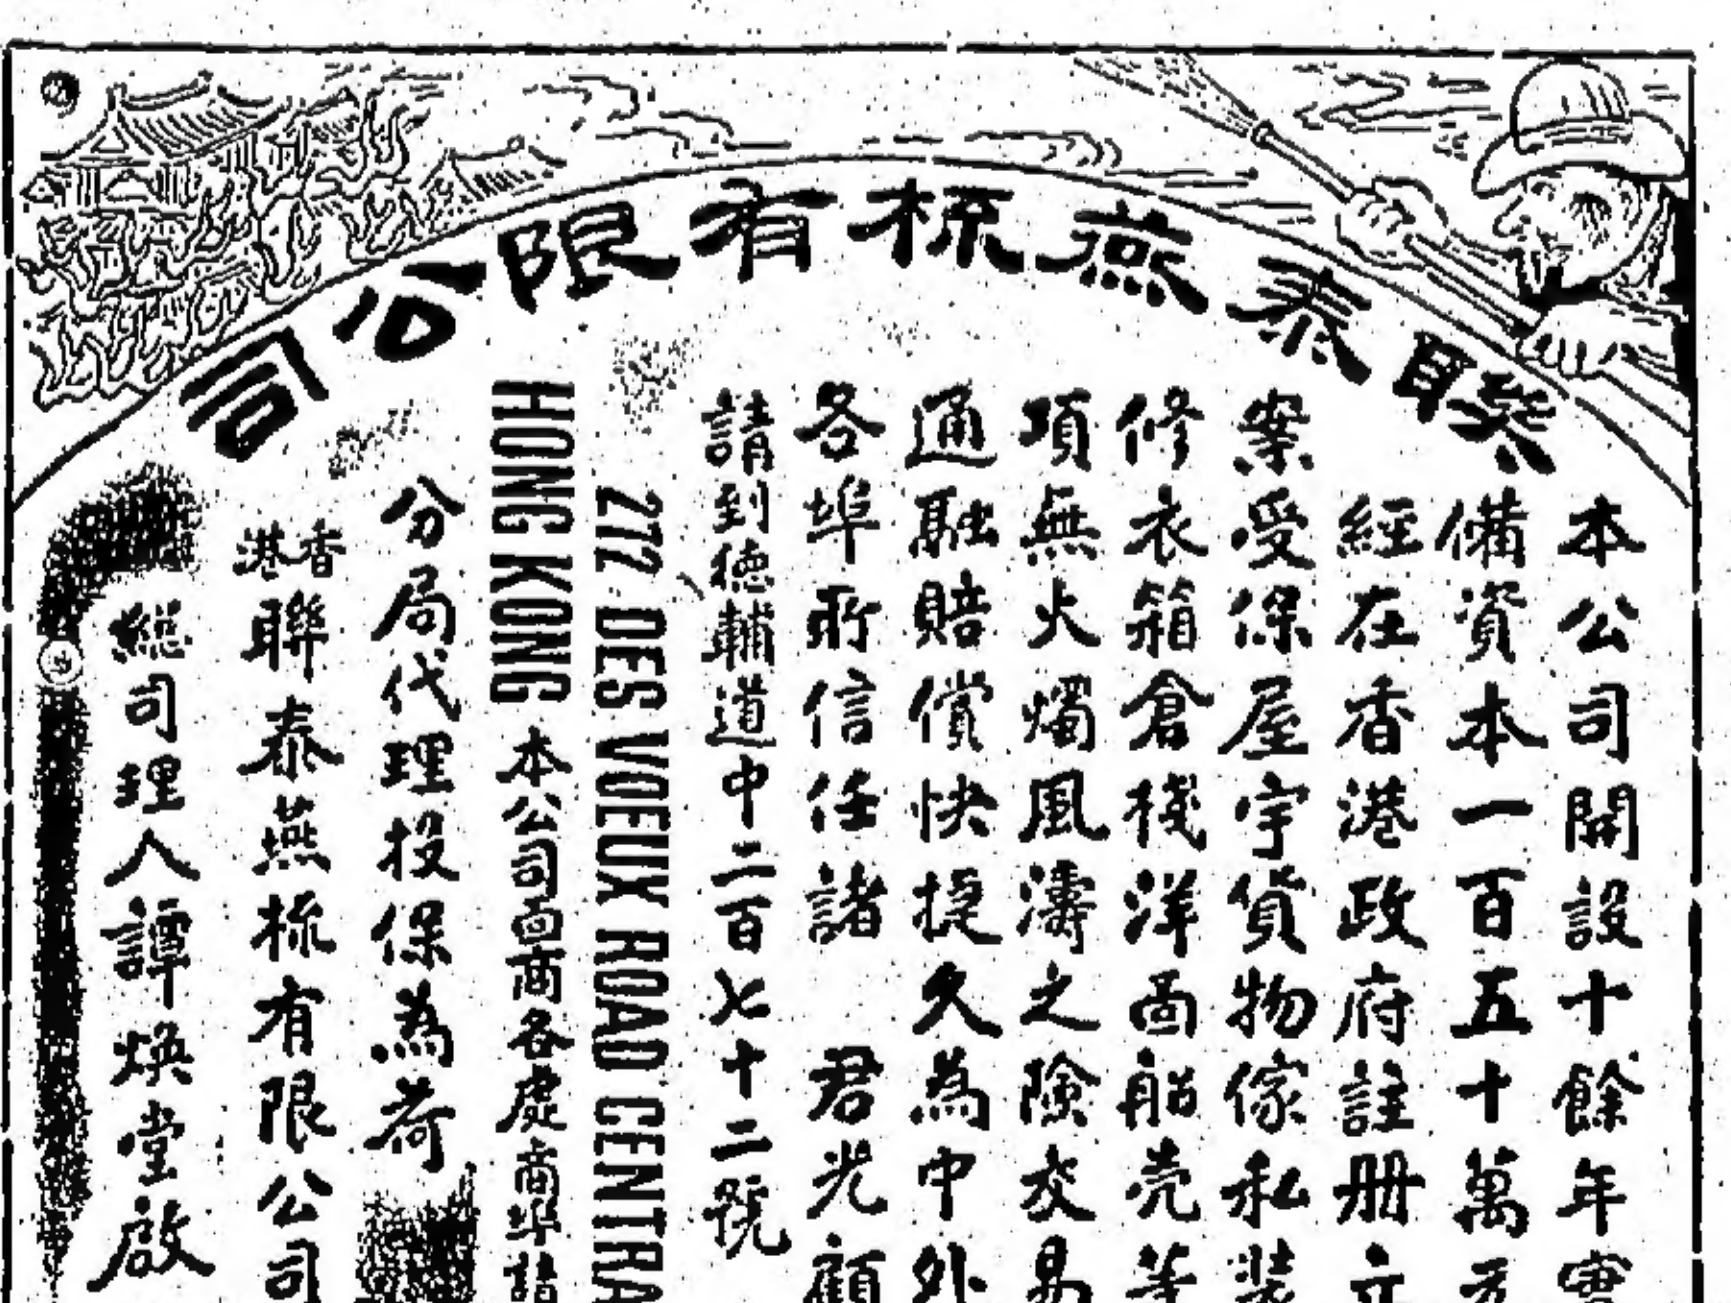 聯泰燕梳有限公司
本公司開設十餘年實
備資本一百五十萬元
經在香港政府註册立
案受保屋宇貨物傢私裝
修衣箱倉棧洋面船壳等
項無火燭風濤之險交易
通融賠償快捷久為中外
各埠所信任諸 君光顧
請到德輔道中二百七十二號
272 DES VOEUX ROAD CENTRA
HONG KONG
本公司面商各處商埠請
分局代理投保為荷
香港聯泰燕梳有限公司
總司理人譚煥堂啟